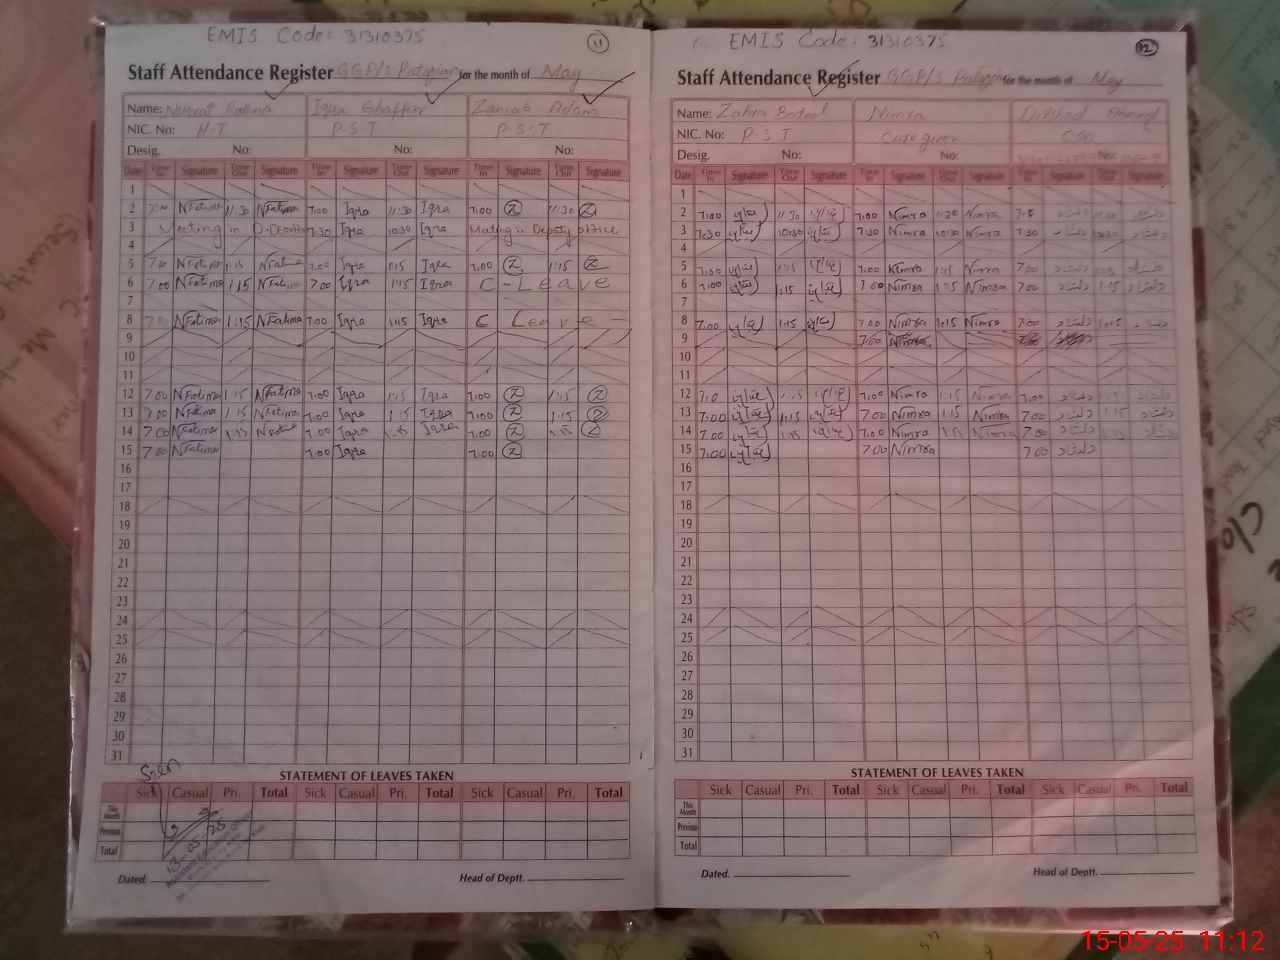 EMIS Code: 31310375
11
Staff Attendance Register GGP/S for the month of May
Name: Nusrat Fatima Iqra Ghaffar Zainab Aslam
NIC. No: H-T P-S-T P-S-T
Desig. No: No: No:
Date Time In Signature Time Out Signature Time In Signature Time Out Signature Time In Signature Time Out Signature
1
2 7:00 NFatima 11:30 NFatima 7:00 Iqra 11:30 Iqra 7:00 Z 11:30 Z
3 Meeting in 7:30 Iqra 10:30 Iqra Meeting in Deputy office
4
5 7:00 NFatima 1:15 NFatima 7:00 Iqra 1:15 Iqra 7:00 Z 1:15 Z
6 7:00 NFatima 1:15 NFatima 7:00 Iqra 1:15 Iqra C-Leave
7
8 7:00 NFatima 1:15 NFatima 7:00 Iqra 1:15 Iqra C Leave
9
10
11
12 7:00 NFatima 1:15 NFatima 7:00 Iqra 1:15 Iqra 7:00 Z 1:15 Z
13 7:00 NFatima 1:15 NFatima 7:00 Iqra 1:15 Iqra 7:00 Z 1:15 Z
14 7:00 NFatima 1:15 NFatima 7:00 Iqra 1:15 Iqra 7:00 Z 1:15 Z
15 7:00 NFatima 7:00 Iqra 7:00 Z
16
17
18
19
20
21
22
23
24
25
26
27
28
29
30
31
STATEMENT OF LEAVES TAKEN
Seen
Sick Casual Pri. Total Sick Casual Pri. Total Sick Casual Pri. Total
This Month
Previous
Total
13-05-25
Dated. Head of Deptt.
EMIS Code: 31310375
12
Staff Attendance Register GGP/S for the month of May
Name: Zahra Batool Nimra Dilshad Ahmed
NIC. No: P-S-T Care giver
Desig. No: No: No:
Date Time In Signature Time Out Signature Time In Signature Time Out Signature Time In Signature Time Out Signature
1
2 7:00 11:30 7:00 Nimra 11:30 Nimra دلشاد دلشاد
3 7:30 10:30 7:30 Nimra 10:30 Nimra 7:30 دلشاد 10:30 دلشاد
4
5 7:00 1:15 7:00 Nimra 1:15 Nimra 7:00 دلشاد 1:15 دلشاد
6 7:00 1:15 7:00 Nimra 1:15 Nimra 7:00 دلشاد 1:15 دلشاد
7
8 7:00 1:15 7:00 Nimra 1:15 Nimra 7:00 دلشاد 1:15 دلشاد
9 7:00 Nimra
10
11
12 7:00 1:15 7:00 Nimra 1:15 Nimra 7:00 دلشاد 1:15 دلشاد
13 7:00 1:15 7:00 Nimra 1:15 Nimra 7:00 دلشاد 1:15 دلشاد
14 7:00 1:15 7:00 Nimra 1:15 Nimra 7:00 دلشاد دلشاد
15 7:00 7:00 Nimra 7:00 دلشاد
16
17
18
19
20
21
22
23
24
25
26
27
28
29
30
31
STATEMENT OF LEAVES TAKEN
Sick Casual Pri. Total Sick Casual Pri. Total Sick Casual Pri. Total
This Month
Previous
Total
Dated. Head of Deptt.
Security
15-05-25 11:12